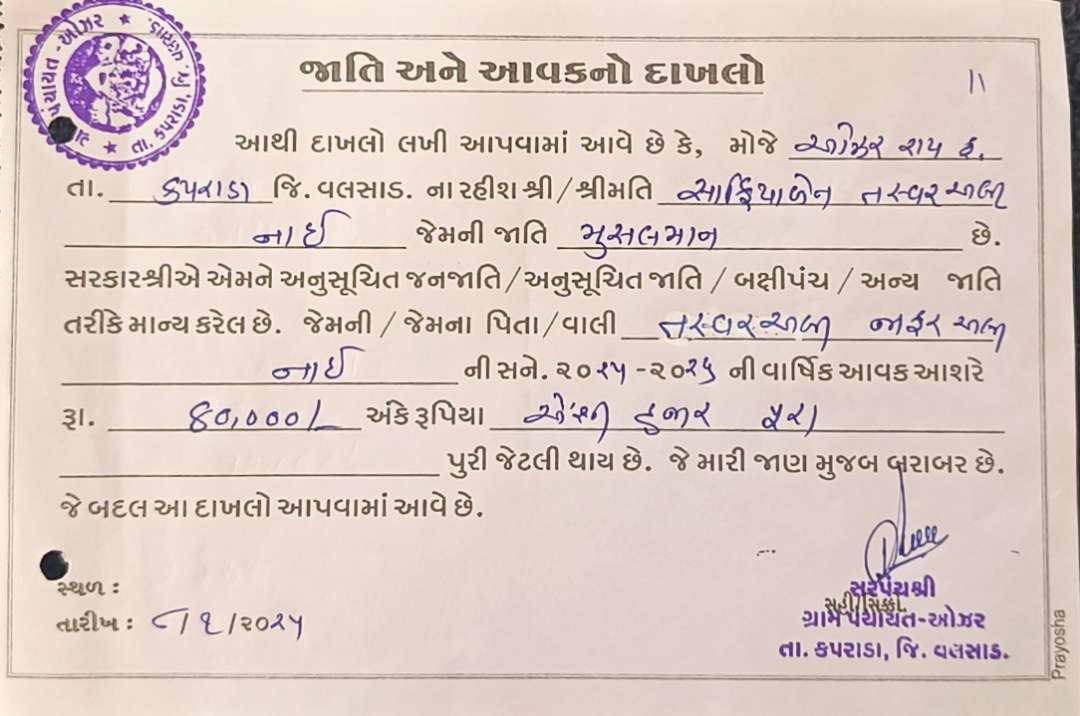 જાતિ અને આવકનો દાખલો
૧૧
આથી દાખલો લખી આપવામાં આવે છે કે, મોજે ઓઝર રાય ફ.
તા. કપરાડા જિ. વલસાડ. ના રહીશ શ્રી / શ્રીમતિ સાફિયાબેન તસ્વરઅલી
નાઈ જેમની જાતિ મુસલમાન છે.
સરકારશ્રીએ એમને અનુસૂચિત જનજાતિ / અનુસૂચિત જાતિ / બક્ષીપંચ / અન્ય જાતિ
તરીકે માન્ય કરેલ છે. જેમની / જેમના પિતા / વાલી તસ્વરઅલી જાફરઅલી
નાઈ ની સને. ૨૦૨૫ - ૨૦૨૬ ની વાર્ષિક આવક આશરે
રૂા. ૪૦,૦૦૦/- અંકે રૂપિયા હજાર પુરા
પુરી જેટલી થાય છે. જે મારી જાણ મુજબ બરાબર છે.
જે બદલ આ દાખલો આપવામાં આવે છે.
સ્થળ :
તારીખ : ૮/૧/૨૦૨૫
સહી/સિક્કો.
સરપંચશ્રી
ગ્રામ પંચાયત-ઓઝર
તા. કપરાડા, જિ. વલસાડ.
પંચાયત - ઓઝર ★ તા. કપરાડા, જિ. વલસાડ. ★
Prayosha